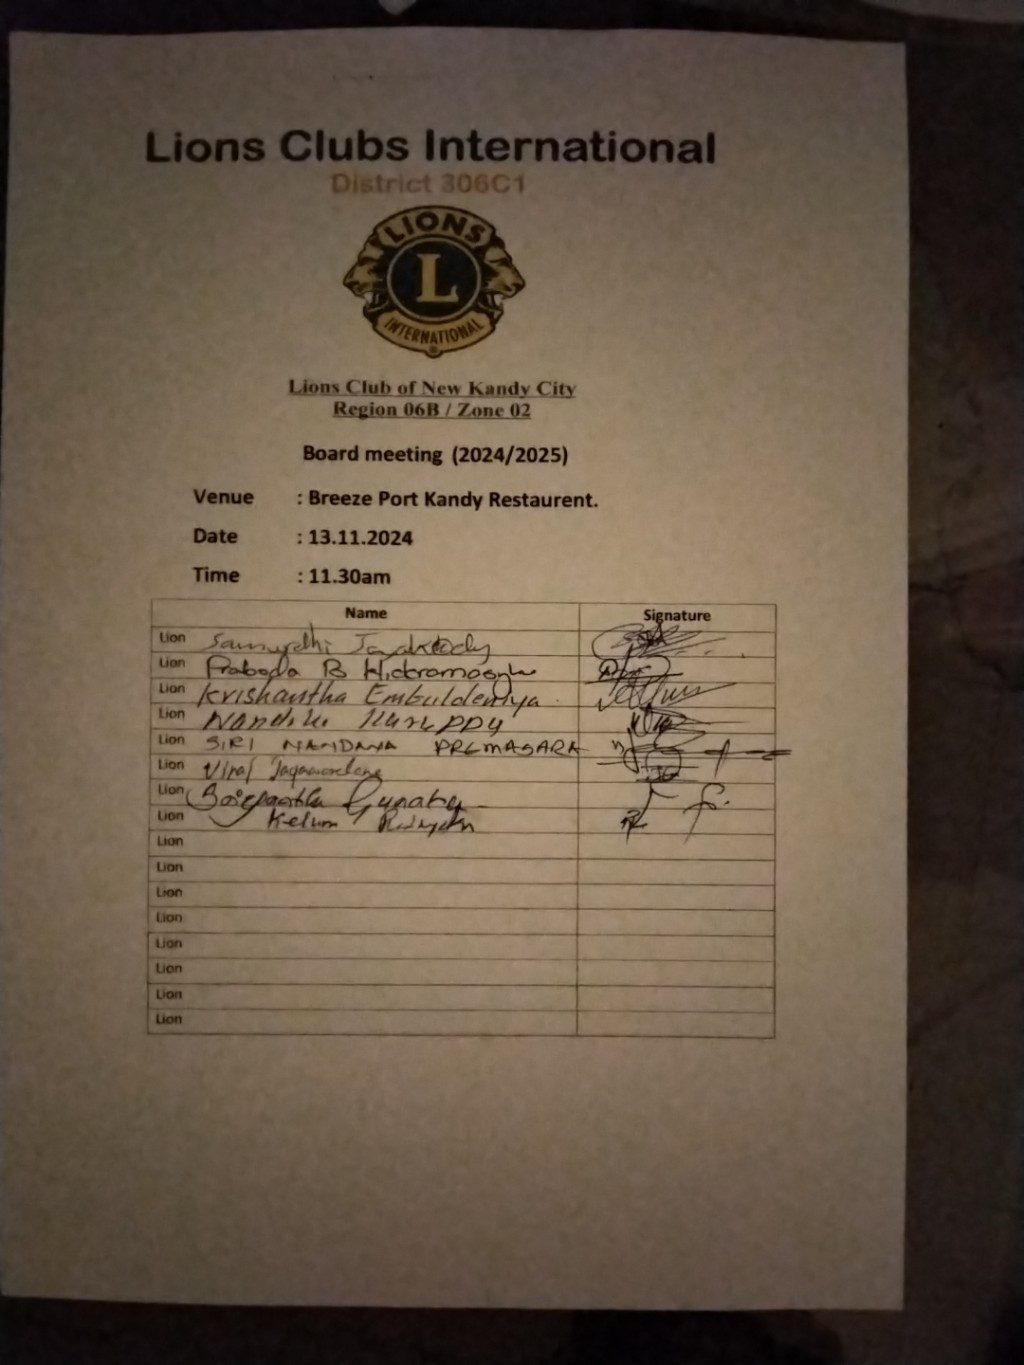 Lions Clubs International
District 306C1
LIONS
L
INTERNATIONAL
Lions Club of New Kandy City
Region 06B / Zone 02
Board meeting (2024/2025)
Venue : Breeze Port Kandy Restaurent.
Date : 13.11.2024
Time : 11.30am
Name Signature
Lion Samurdhi Jayakody
Lion Praboda B
Lion Krishantha Embuldeniya
Lion
Lion SIRI NANDANA PREMASARA
Lion Viraj
Lion
Lion Kelum
Lion
Lion
Lion
Lion
Lion
Lion
Lion
Lion